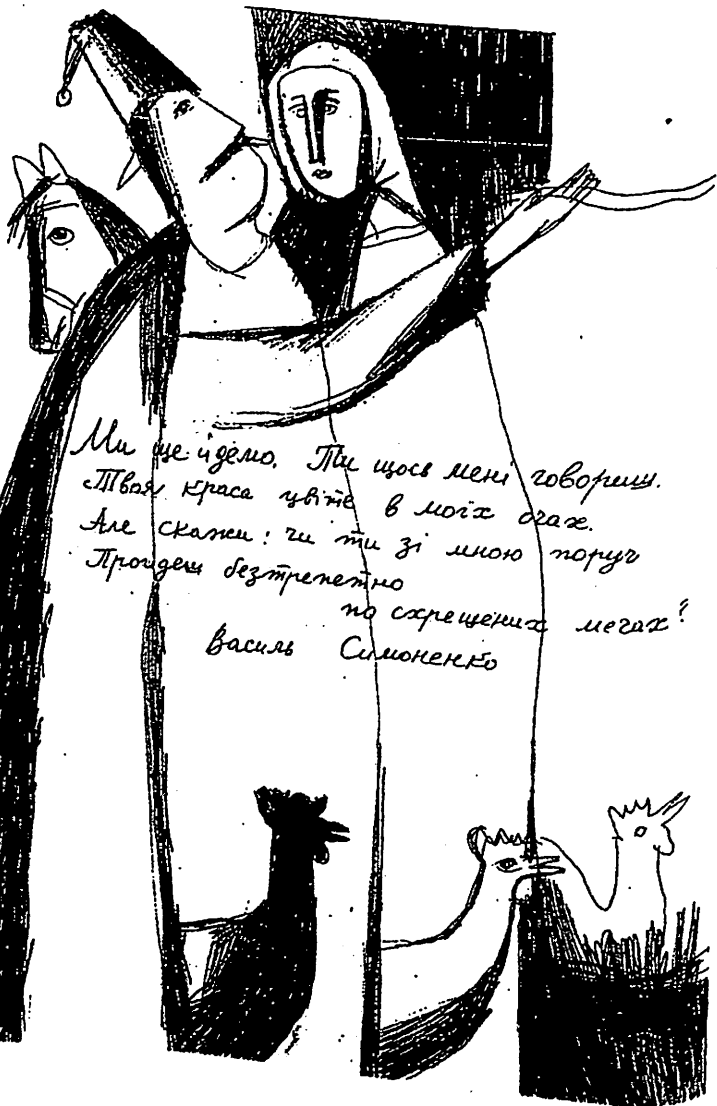 Ми ще йдемо. Ти щось мені говориш.
Твоя краса цвіте в моїх очах.
Але скажи: чи ти зі мною поруч
Пройдеш безтрепетно
по схрещених мечах?
Василь Симоненко